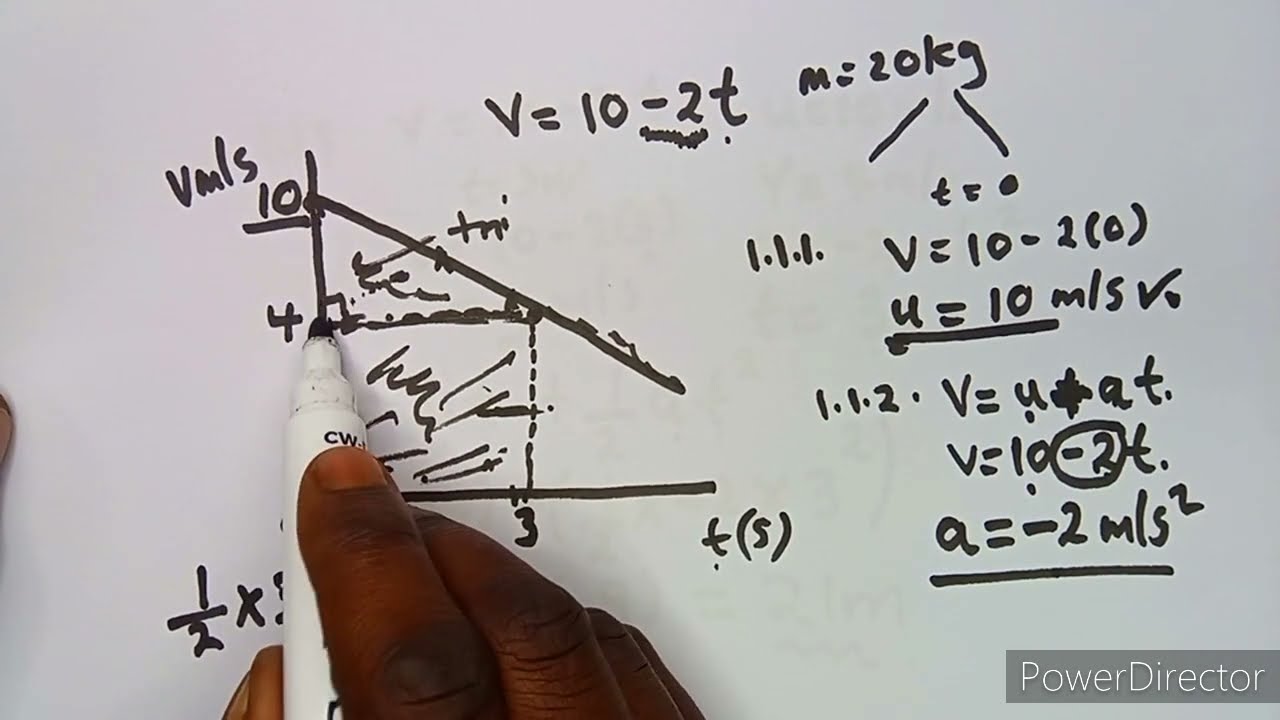 V = 10 - 2t
m = 20kg
t = 0
Vm/s
10
tri
4
3
t(s)
1/2 x
1.1.1. V = 10 - 2(0)
u = 10 m/s
1.1.2. V = u + at.
V = 10 - 2t.
a = -2 m/s²
CW-
PowerDirector